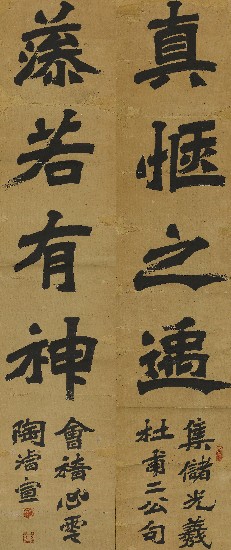 真愜之
若有神
集儲光羲
杜甫二公句
會稽心雲
陶濬宣